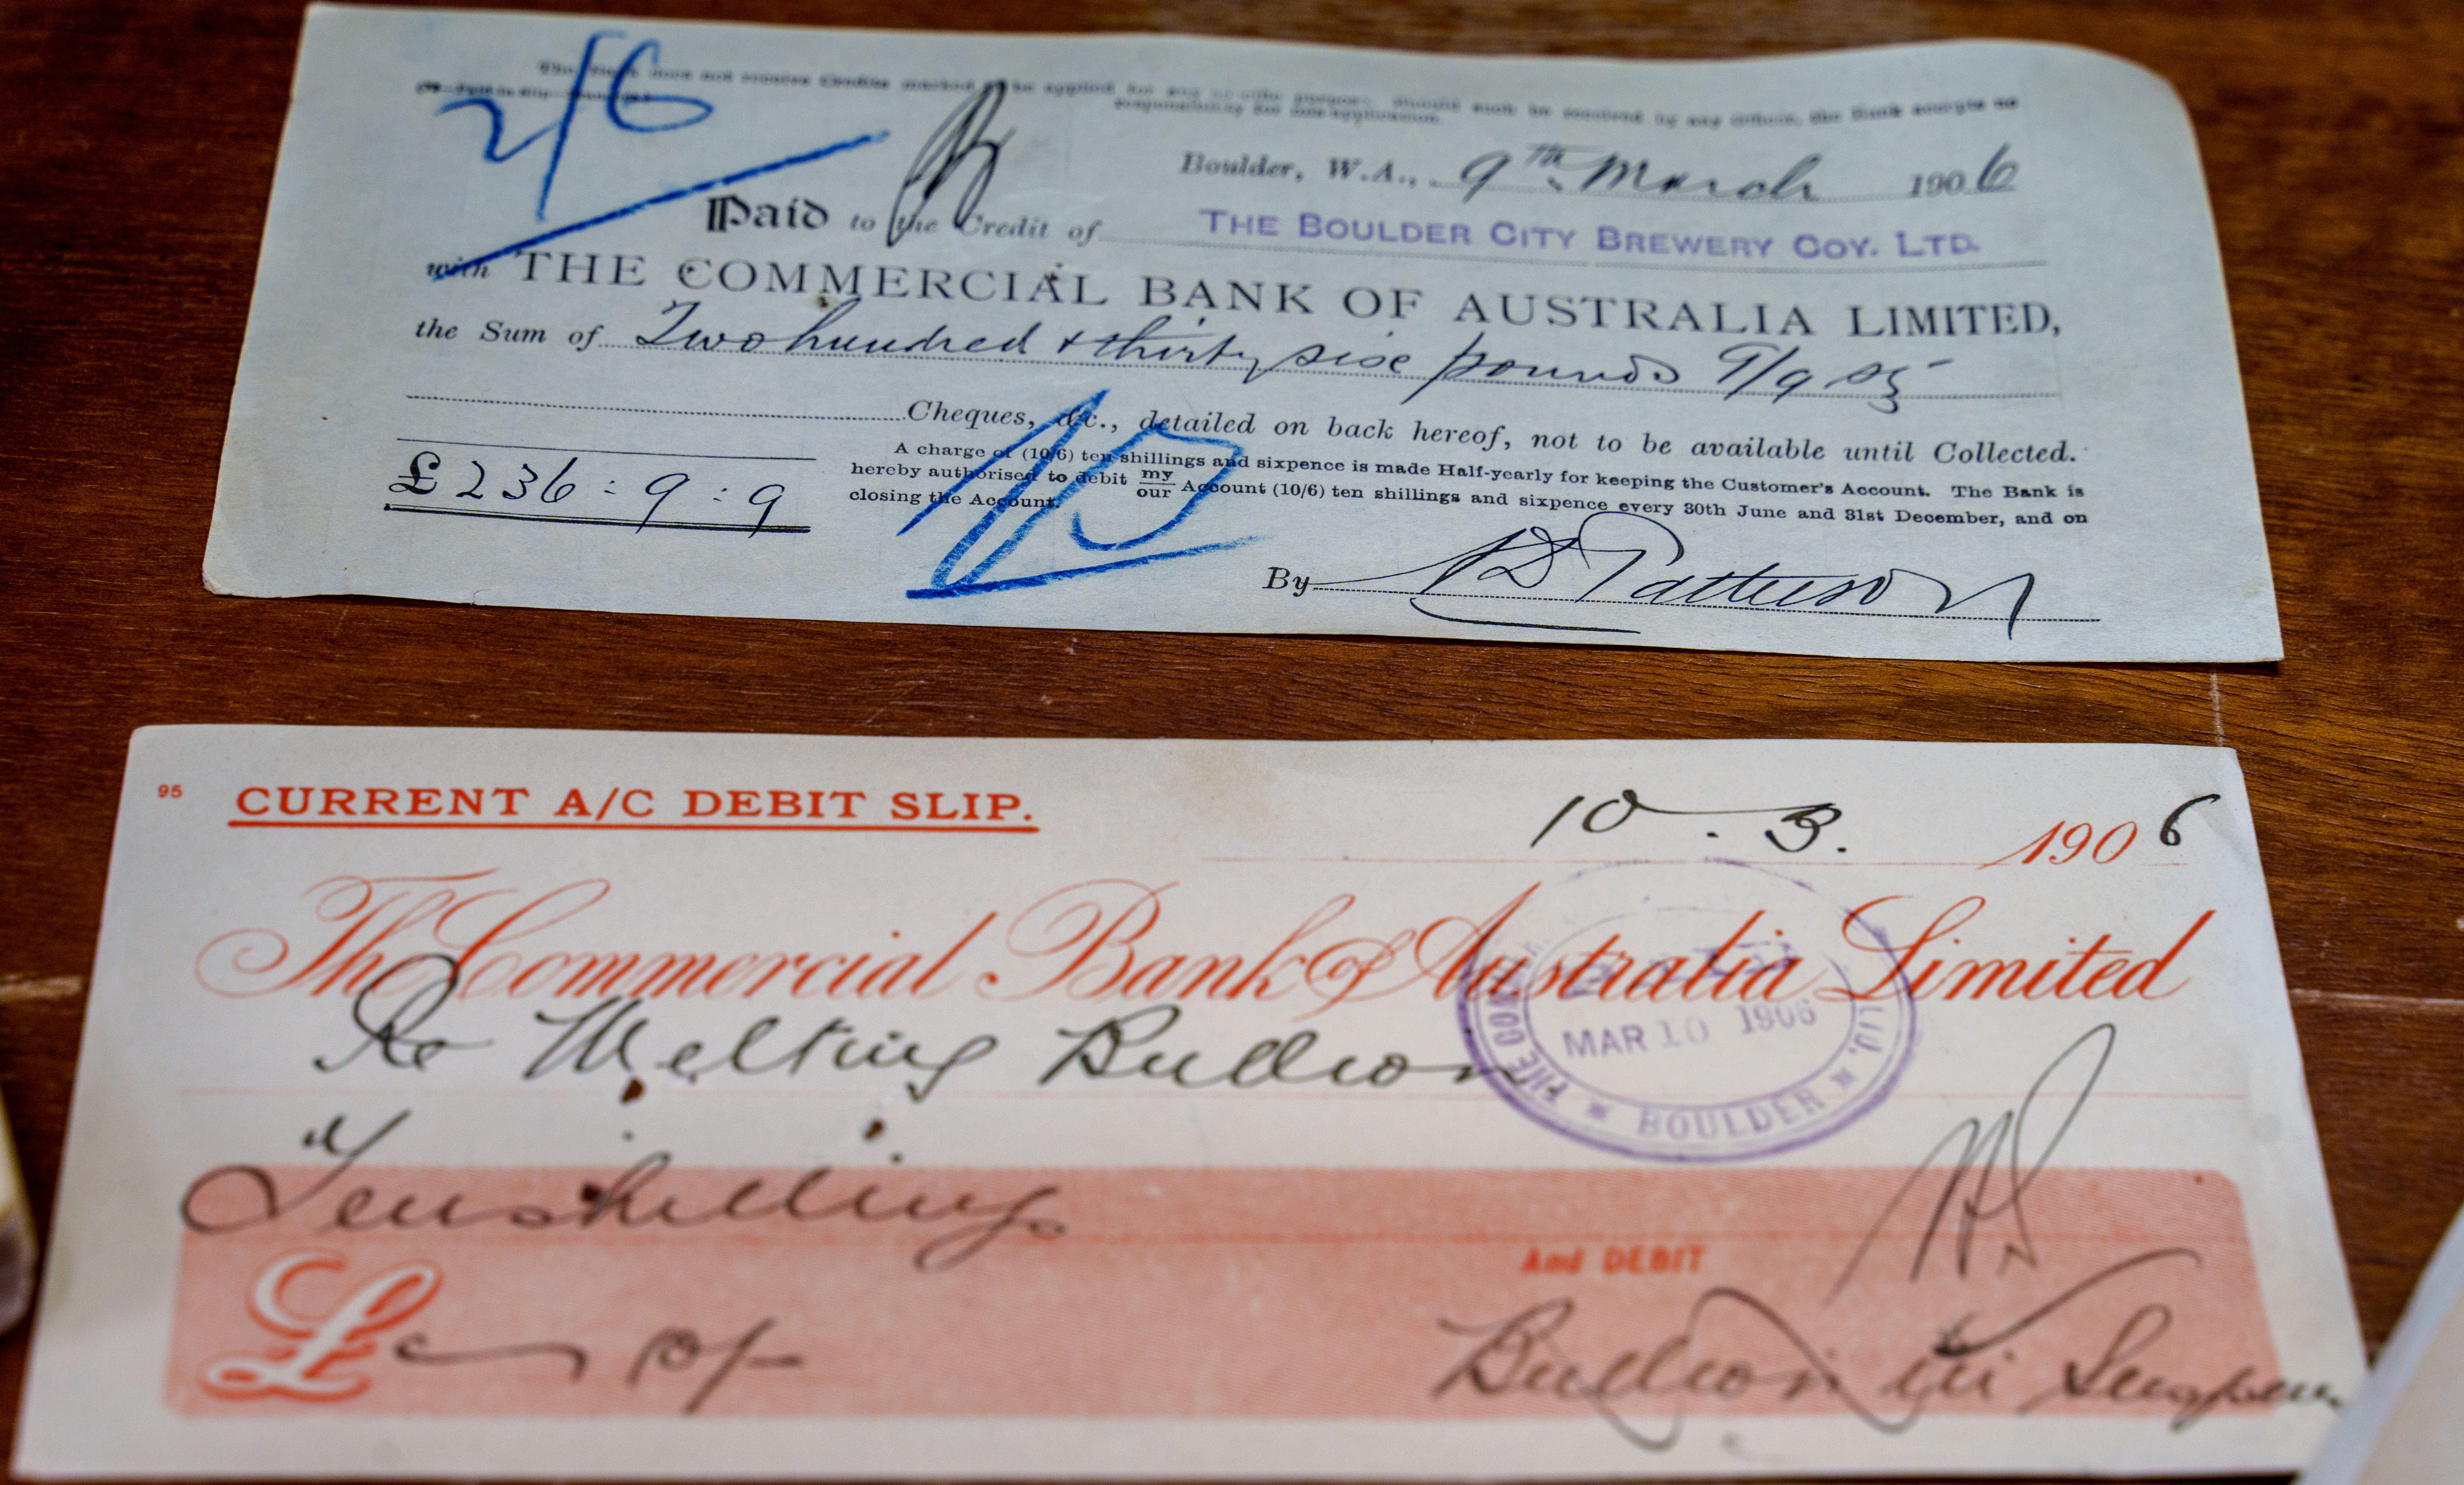 The Bank does not receive Credits marked to be applied for any specific purpose. Should such be received by any Officer, the Bank accepts no
responsibility for mis-application.
2/6
Boulder, W.A., 9th March 1906
Paid to the Credit of THE BOULDER CITY BREWERY COY. LTD.
with THE COMMERCIAL BANK OF AUSTRALIA LIMITED,
the Sum of Two hundred & thirty six pounds 9/9
Cheques, &c., detailed on back hereof, not to be available until Collected.
A charge of (10/6) ten shillings and sixpence is made Half-yearly for keeping the Customer's Account. The Bank is
hereby authorised to debit my/our Account (10/6) ten shillings and sixpence every 30th June and 31st December, and on
closing the Account.
£236:9:9
By Patterson
95 CURRENT A/C DEBIT SLIP.
10.3.1906
The Commercial Bank of Australia Limited
Re Melting Bullion
MAR 10 1906
BOULDER
Ten shillings
And DEBIT
£ 10/-
Bullion in Suspense